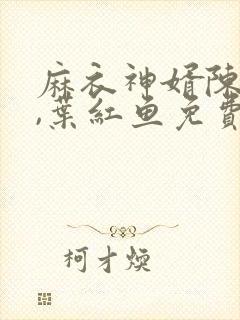 麻衣神婿陳
,葉紅魚免費
柯才煥